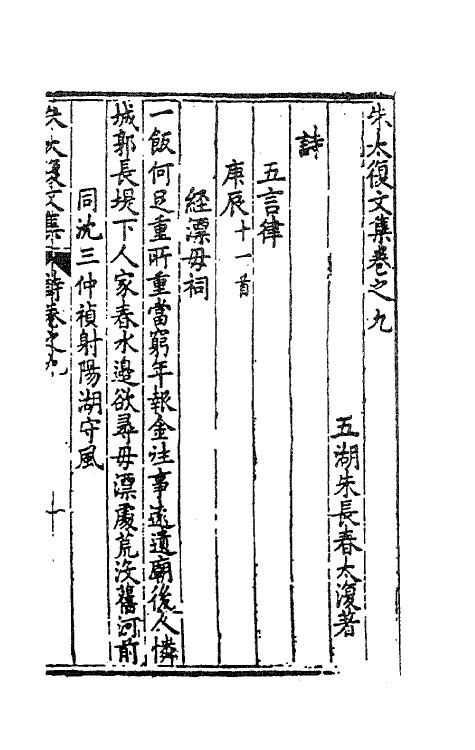 朱太復文集卷之九
五湖朱長春太復著
詩
五言律
庚辰十一首
經漂母祠
一飯何足重所重當窮年報金往事遠遺廟後人憐
城郭長堤下人家春水邊欲尋母漂處荒沒舊河前
同沈三仲禎射陽湖守風
朱太復文集 詩卷之九 一